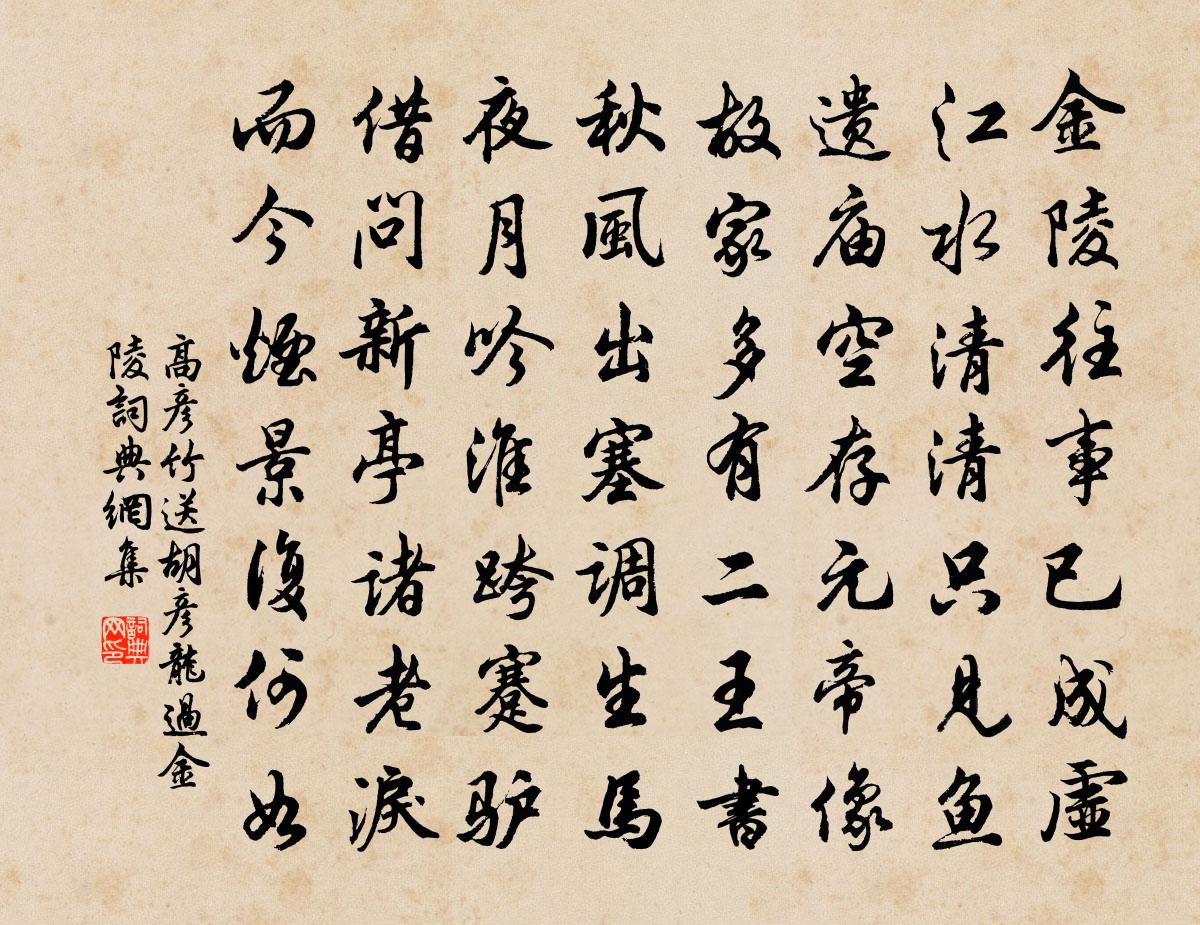 金陵往事已成虛
江水清清只见鱼
遗庙空存元帝像
故家多有二王書
秋風出塞调生馬
夜月吟淮跨蹇驴
借问新亭诸老淚
而今煙景復何如
高彦竹送胡彦龍過金
陵詞典網集
詞典网印